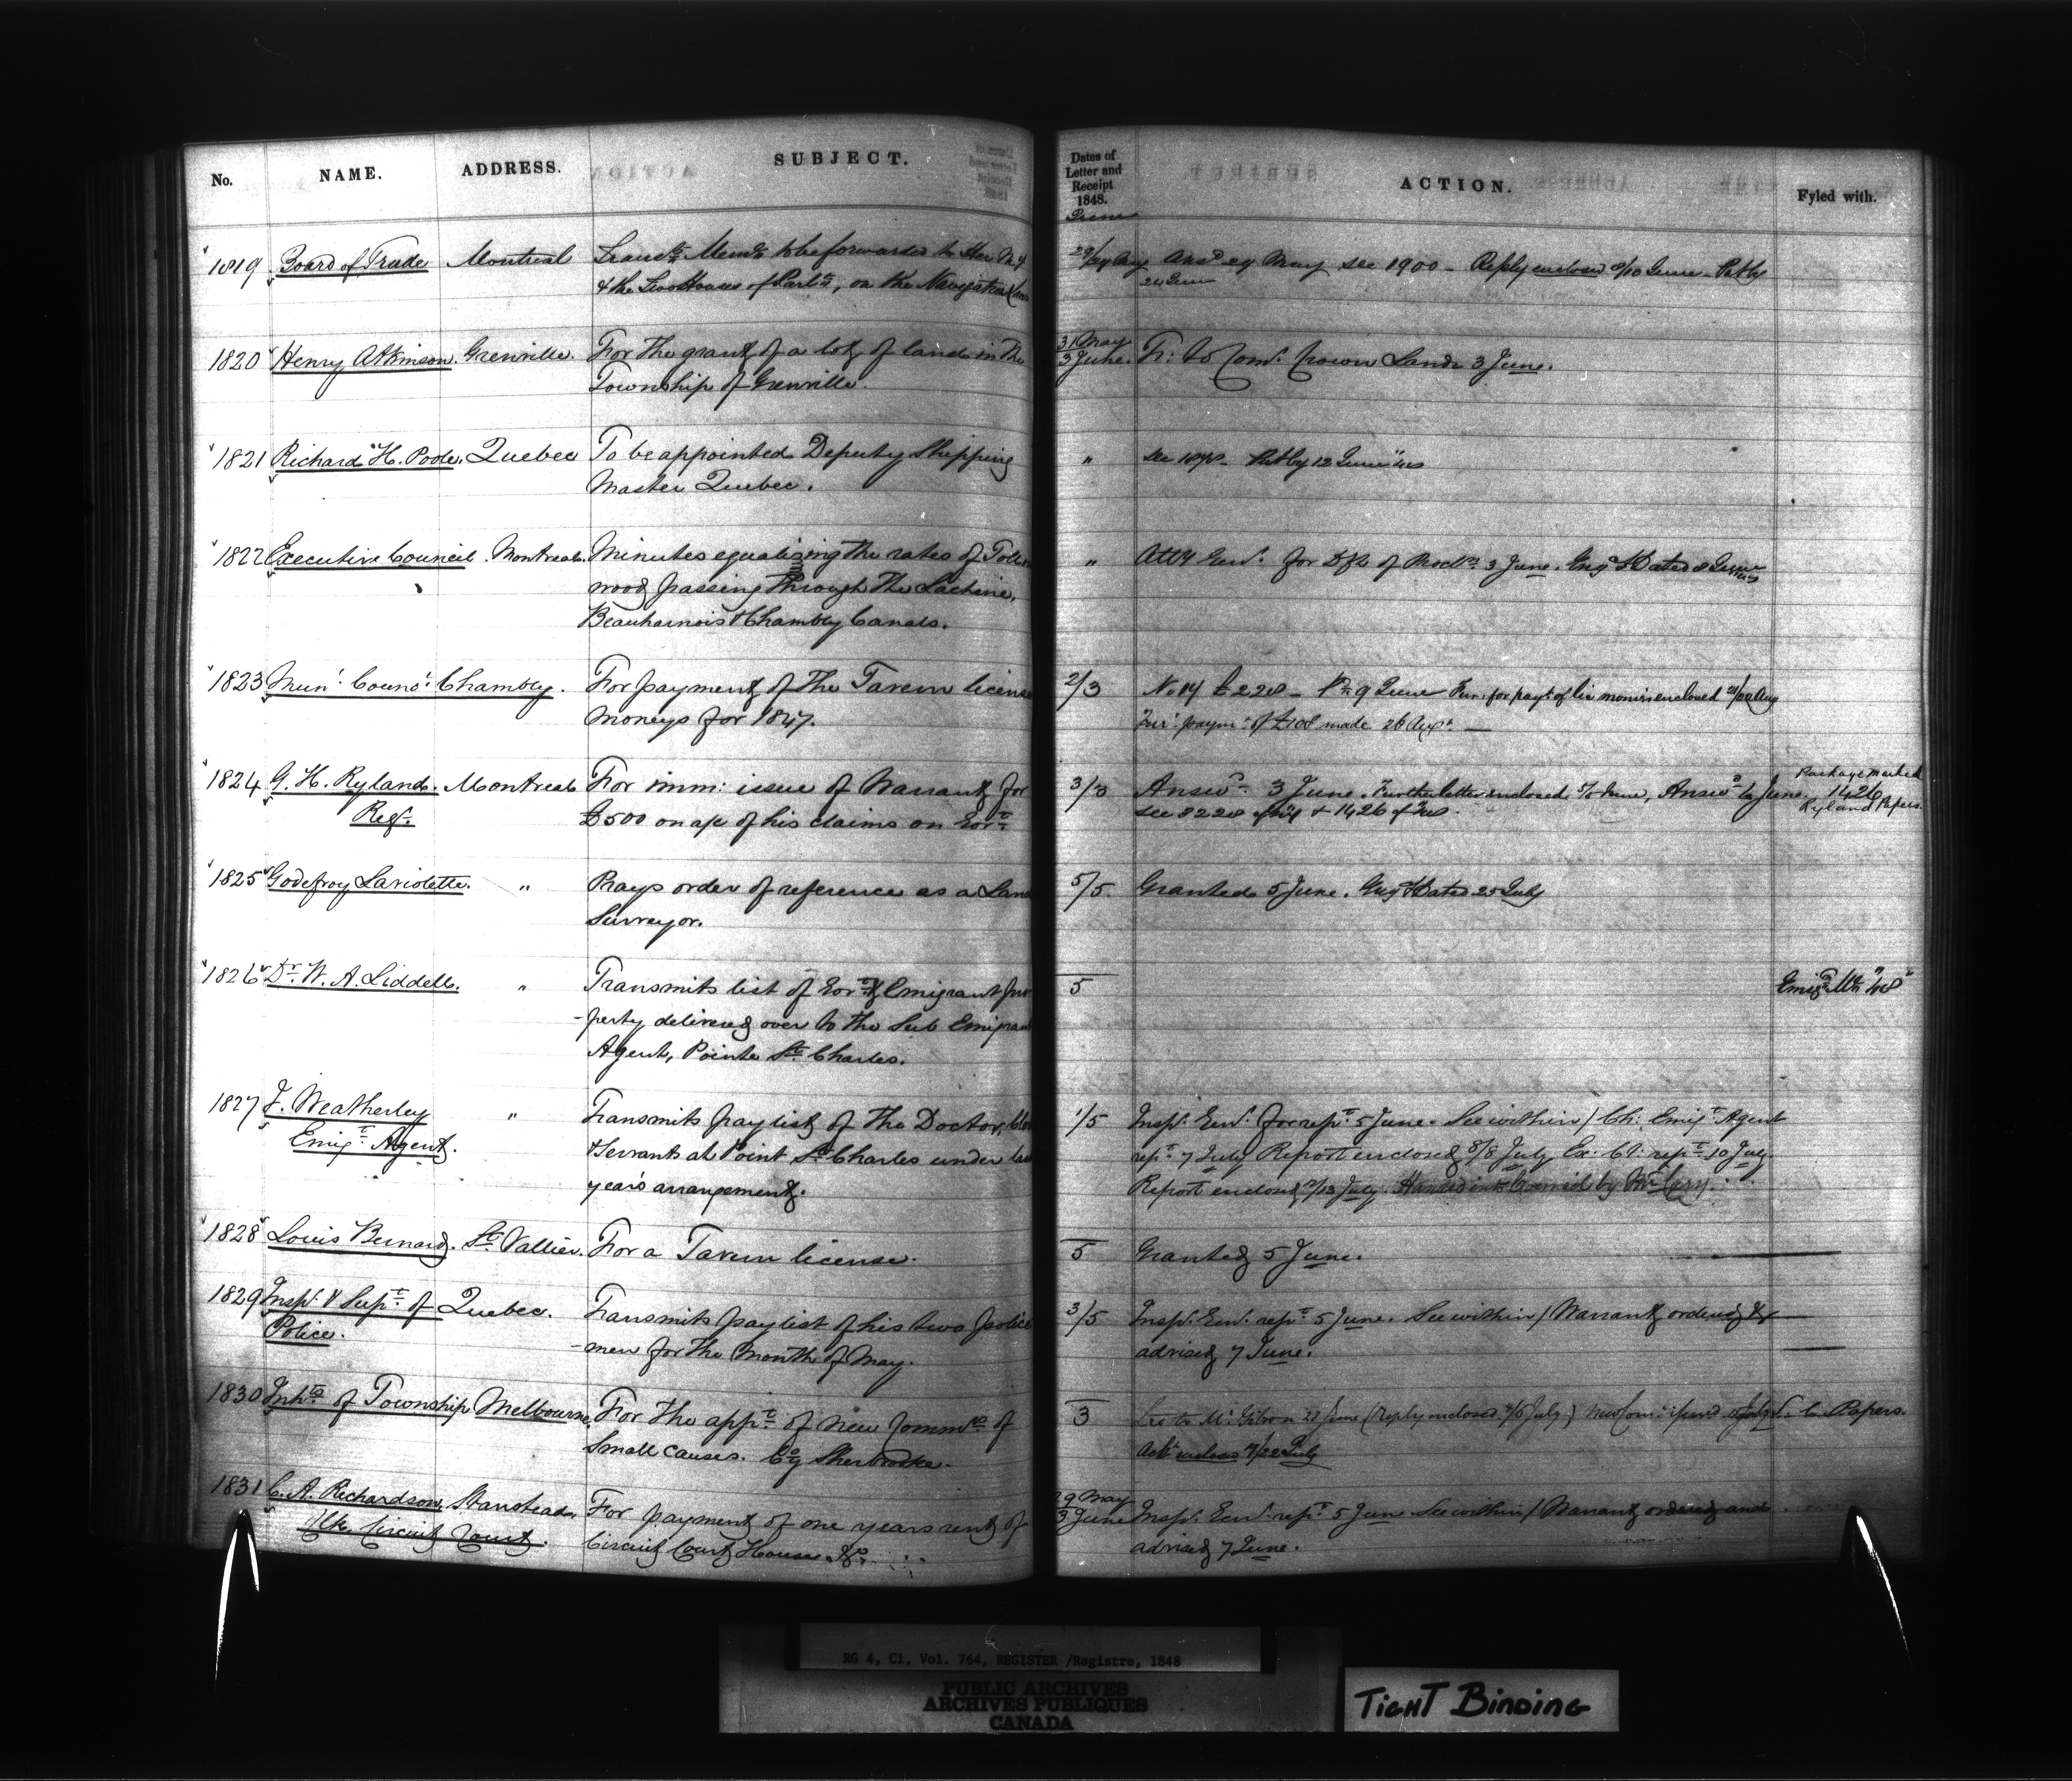 No. NAME. ADDRESS. SUBJECT.
Dates of Letter and Receipt 1848. ACTION. Fyled with.
June
1819 Board of Trade Montreal Transts Memo to be forwarded to Her My
& the Two Houses of Parlt, on the Navigation Laws
29/29 May Ansd 29 May see 1900 - Reply enclosed 9/10 June - Put by
24 June
1820 Henry Atkinson. Grenville. For the grant of a lot of land in the
Township of Grenville.
31 May
3 June. Fr: to Comr. Crown Lands 3 June.
1821 Richard H. Poole. Quebec To be appointed Deputy Shipping
Master Quebec.
" See Put by 12 June
1822 Executive Council. Montreal. Minutes equalizing the rates of Toll on
wood passing through the Lachine,
Beauharnois & Chambly Canals.
" Atty Genl. for Dft of Procln 3 June. Engd & Dated 8 June
1823 Mun: Counc: Chambly. For payment of the Tavern license
Moneys for 1847.
2/3 No 14 £228 - Pd 9 June Fur: for payt of lic monies enclosed Aug
Fur: paymt of £108 made 26 Augt. —
1824 G. H. Ryland. Montreal For imm: issue of Warrant for
Regr. £500 on a/c of his claims on Govt
3/3 Answd 3 June. Further letter enclosed 5/6 June, Answd 6 June.
see 3228 of & 1426 of
Package marked
1426
Ryland Papers.
1825 Godefroy Laviolette. " Prays order of reference as a Land
Surveyor.
5/5. Granted 5 June. Engd & Dated 25 July
1826 Dr. W. A. Liddell. " Transmits list of Govt & Emigrant pro
-perty delivered over to the Sub Emigrant
Agent, Pointe St. Charles.
5
Emigtn "48"
1827 J. Weatherley " Transmits pay list of the Doctor,
Emigt Agent. & Servants at Point St. Charles under last
year's arrangement.
1/5 Insp: Genl. for rept 5 June. See within / Ch: Emigt Agent
rept 7 July Report enclosed 8/8 July Ex: Cl: rept 10 July.
Report enclosed /13 July. Handed into Council by Mr Cary.
1828 Louis Bernard. St. Vallier. For a Tavern license.
5 Granted 5 June.
1829 Insp. & Supt of Quebec. Transmits pay list of his two police
Police. -men for the month of May.
3/5 Insp. Genl. rept 5 June. See within / Warrant ordered &
advised 7 June.
1830 Inhts of Township Melbourne. For the appt of new Commrs of
Small causes. Cy Sherbrooke.
3 Let to Mr Gibson 22 June (Reply enclosed 4/6 July) New Com: issued July S. C. Papers.
Ack enclosed /22 July
1831 C. A. Richardson. Stanstead. For payment of one years rent of
Clk. Circuit Court. Circuit Court House &c.
29 May
3 June Insp. Genl. rept 5 June See within / Warrant ordered and
advised 7 June.
RG 4, C1, Vol. 764, REGISTER /Registre, 1848
PUBLIC ARCHIVES
ARCHIVES PUBLIQUES
CANADA
TIGHT BINDING